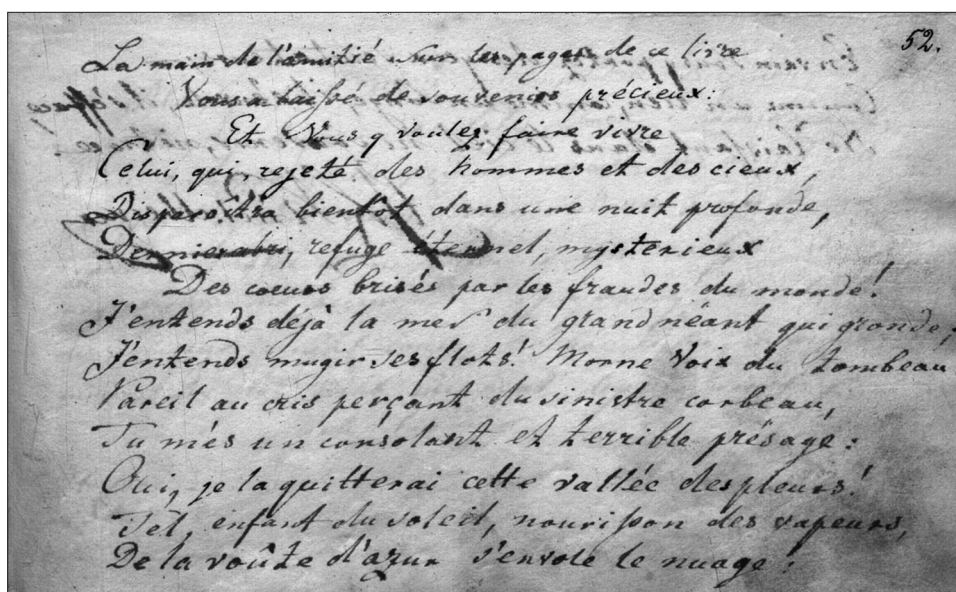 52.
La main de l'amitié sur les pages de ce livre
Vous a laissé de souvenirs précieux:
Et Vous y voulez faire vivre
Celui, qui, rejeté des hommes et des cieux,
Disparoîtra bientôt dans une nuit profonde,
Dernier abri, refuge éternel, mystérieux
Des coeurs brisés par les fraudes du monde!
J'entends déjà la mer du grand néant qui gronde,
J'entends mugir ses flots! Morne Voix du tombeau
Pareil au cris perçant du sinistre corbeau,
Tu m'és un consolant et terrible présage:
Oui, je la quitterai cette vallée des pleurs!
Tel, enfant du soleil, nourisson des vapeurs,
De la voûte d'azur s'envole le nuage!